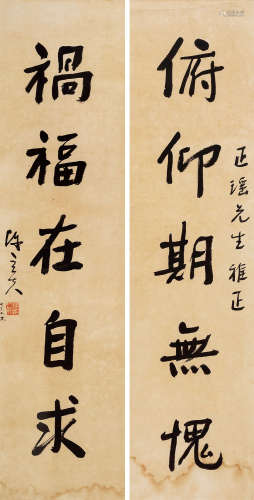 俯仰期無愧
正瑶先生雅正
禍福在自求
陳立夫